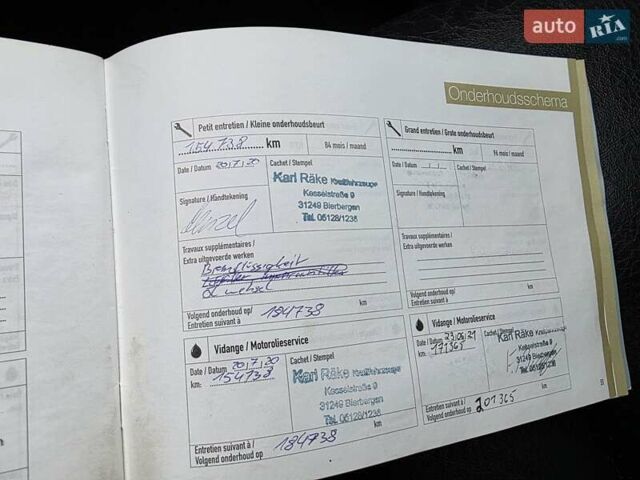 auto RIA
.com
Onderhoudsschema
Petit entretien / Kleine onderhoudsbeurt
154.738 km
84 mois / maand
Date / Datum 20,7,20
Cachet / Stempel
Karl Räke Kraftfahrzeuge
Kesselstraße 9
31249 Bierbergen
Tel. 05128/1235
Signature / Handtekening
Travaux supplémentaires /
Extra uitgevoerde werken
Bremsflüssigkeit
wechsel
Volgend onderhoud op/
Entretien suivant à
184738 km
Grand entretien / Grote onderhoudsbeurt
km
96 mois / maand
Date / Datum
Cachet / Stempel
Signature / Handtekening
Travaux supplémentaires /
Extra uitgevoerde werken
Volgend onderhoud op/
Entretien suivant à
km
Vidange / Motorolieservice
Date / Datum 20,7,20
km: 154738
Cachet / Stempel
Karl Räke Kraftfahrzeuge
Kesselstraße 9
31249 Bierbergen
Tel. 05128/1235
Entretien suivant à /
Volgend onderhoud op
184738 km
Vidange / Motorolieservice
Date / Datum 23.06.21
km: 171365
Cachet / Stempel
Karl Räke Kraftfahrzeuge
Kesselstraße 9
31249 Bierbergen
Tel. 05128/1235
Entretien suivant à /
Volgend onderhoud op
201365 km